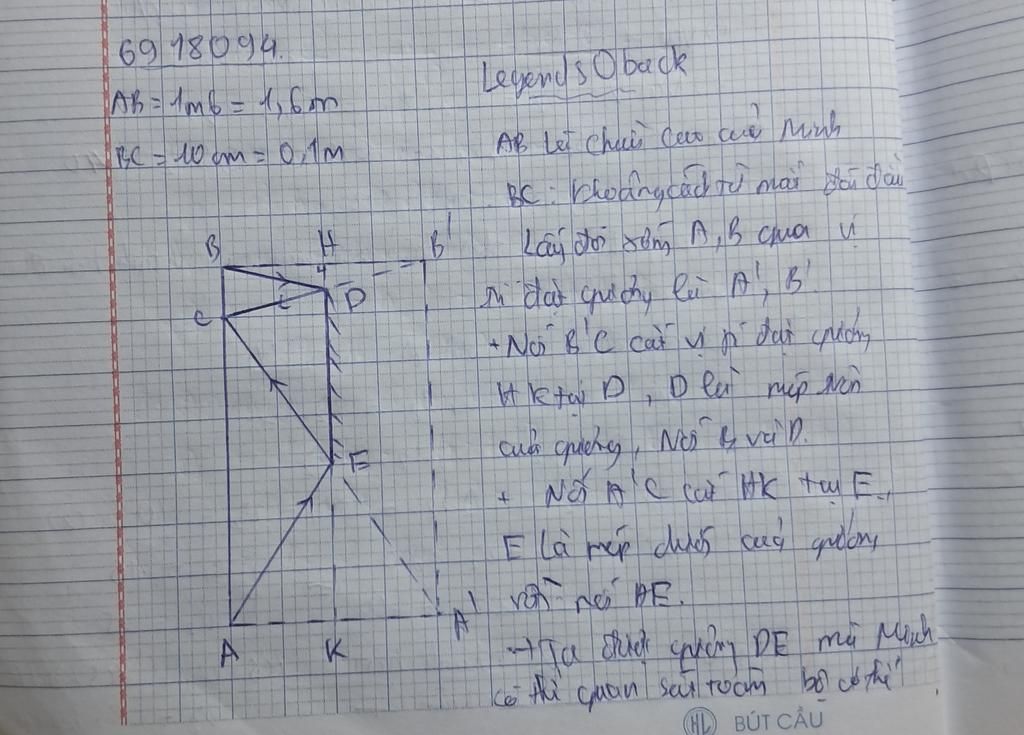 6918094.
Legends O back
AB = 1m6 = 1,6m
BC = 10 cm = 0,1m
AB là chiều cao của Minh
BC: khoảng cách từ mắt đến đầu
B H B'
Lấy đối xứng A, B qua vị
trí đặt gương là A', B'
D
C
+ Nối B'C cắt vị trí đặt gương
HK tại D, D là mép trên
của gương, Nối B và D.
E
+ Nối A'C cắt HK tại E,
E Là mép dưới của gương
rồi nối AE.
A K A'
→ Ta được gương DE mà Minh
có thể quan sát toàn bộ cơ thể
HL BÚT CẦU